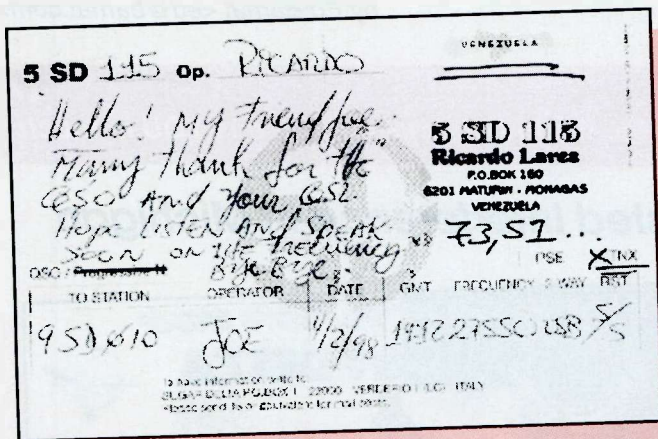 VENEZUELA
5 SD 115 Op. RICARDO
Hello! My Friend Joe
Many Thank for the
QSO And your QSL
Hope LISTEN And SPEAK
SOON ON THE Frecuency
BYE BYE.
5 SD 115
Ricardo Lares
P.O.BOX 160
6201 MATURIN - MONAGAS
VENEZUELA
73,51...
QSO / Progressive N
PSE X TNX
TO STATION OPERATOR DATE GMT FRECUENCY 2 WAY RST
9SD010 JOE 4/2/98 27550 USB 5/5
To have information write to:
SUGAR DELTA P.O.BOX 1 - VERDERIO (LC) - ITALY
Please send